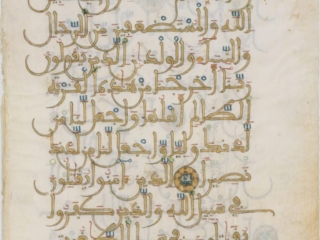 الله والمستضعفين من الرجال
والنساء والولدن الذين يقولون
ربنا أخرجنا من هذه القرية
الظالم أهلها واجعل لنا من
لدنك وليا واجعل لنا من لدنك
نصيرا الذين ءامنوا يقتلون
في سبيل الله والذين كفروا